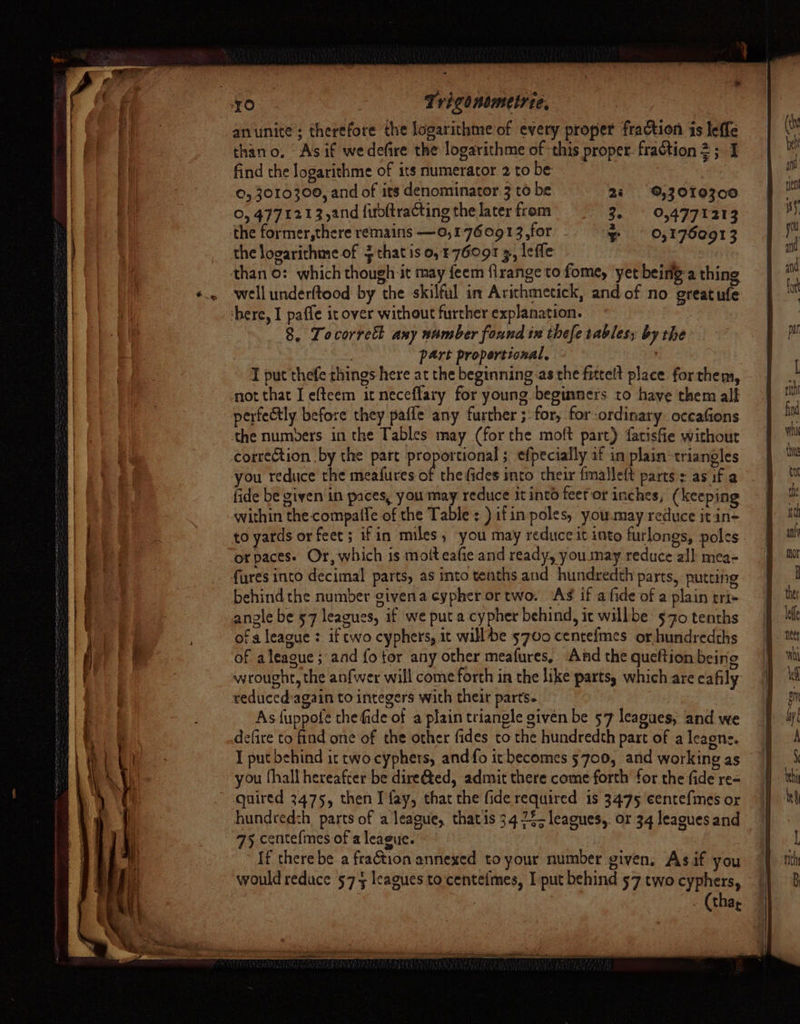 10 Trigonometrie.
an unite ; therefore the logarithme of every proper fraction is leſſe
than 0. As if we deſire the logarithme of this proper fraction ⅔ ; I
find the logarithme of its numerator 2 to be
0,3010300, and of its denominator 3 to be 2. 0,3010300
0,4771213,and ſubſtracting the later from 3. 0,4771213
the former,there remains —0,1760913,for ⅔ 0,1760913
the logarithme of ⅔ that is 0,1760913, leſſe
than 0: which though it may ſeem ſtrange to ſome, yet being a thing
well underſtood by the skilful in Arithmetick, and of no great uſe
here, I paſſe it over without further explanation.
8. To correct any number found in theſe tables, by the
part proportional.
I put theſe things here at the beginning as the fitteſt place for them,
not that I eſteem it neceſſary for young beginners to have them all
perfectly before they paſſe any further ; for, for ordinary occaſions
the numbers in the Tables may (for the moſt part) ſatisfie without
correction by the part proportional ; eſpecially if in plain triangles
you reduce the meaſures of the ſides into their ſmalleſt parts : as if a
ſide be given in paces, you may reduce it into feet or inches, (keeping
within the compaſſe of the Table : ) if in poles, you may reduce it in-
to yards or feet ; if in miles, you may reduce it into furlongs, poles
or paces. Or, which is moſt eaſie and ready, you may reduce all mea-
ſures into decimal parts, as into tenths and hundredth parts, putting
behind the number given a cypher or two. As if a ſide of a plain tri-
angle be 57 leagues, if we put a cypher behind, it will be 570 tenths
of a league : if two cyphers, it will be 5700 centeſmes or hundredths
of a league ; and ſo for any other meaſures, And the queſtion being
wrought, the anſwer will come forth in the like parts, which are eaſily
reduced again to integers with their parts.
As ſuppoſe the ſide of a plain triangle given be 57 leagues, and we
deſire to find one of the other ſides to the hundredth part of a league.
I put behind it two cyphers, and ſo it becomes 5700, and working as
you ſhall hereafter be directed, admit there come forth for the ſide re-
quired 3475, then I ſay, that the ſide required is 3475 centeſmes or
hundredth parts of a league, that is 34 75/100 leagues, or 34 leagues and
75 centeſmes of a league.
If there be a fraction annexed to your number given. As if you
would reduce leagues to centeſmes, I put behind 57 two cyphers,
(that